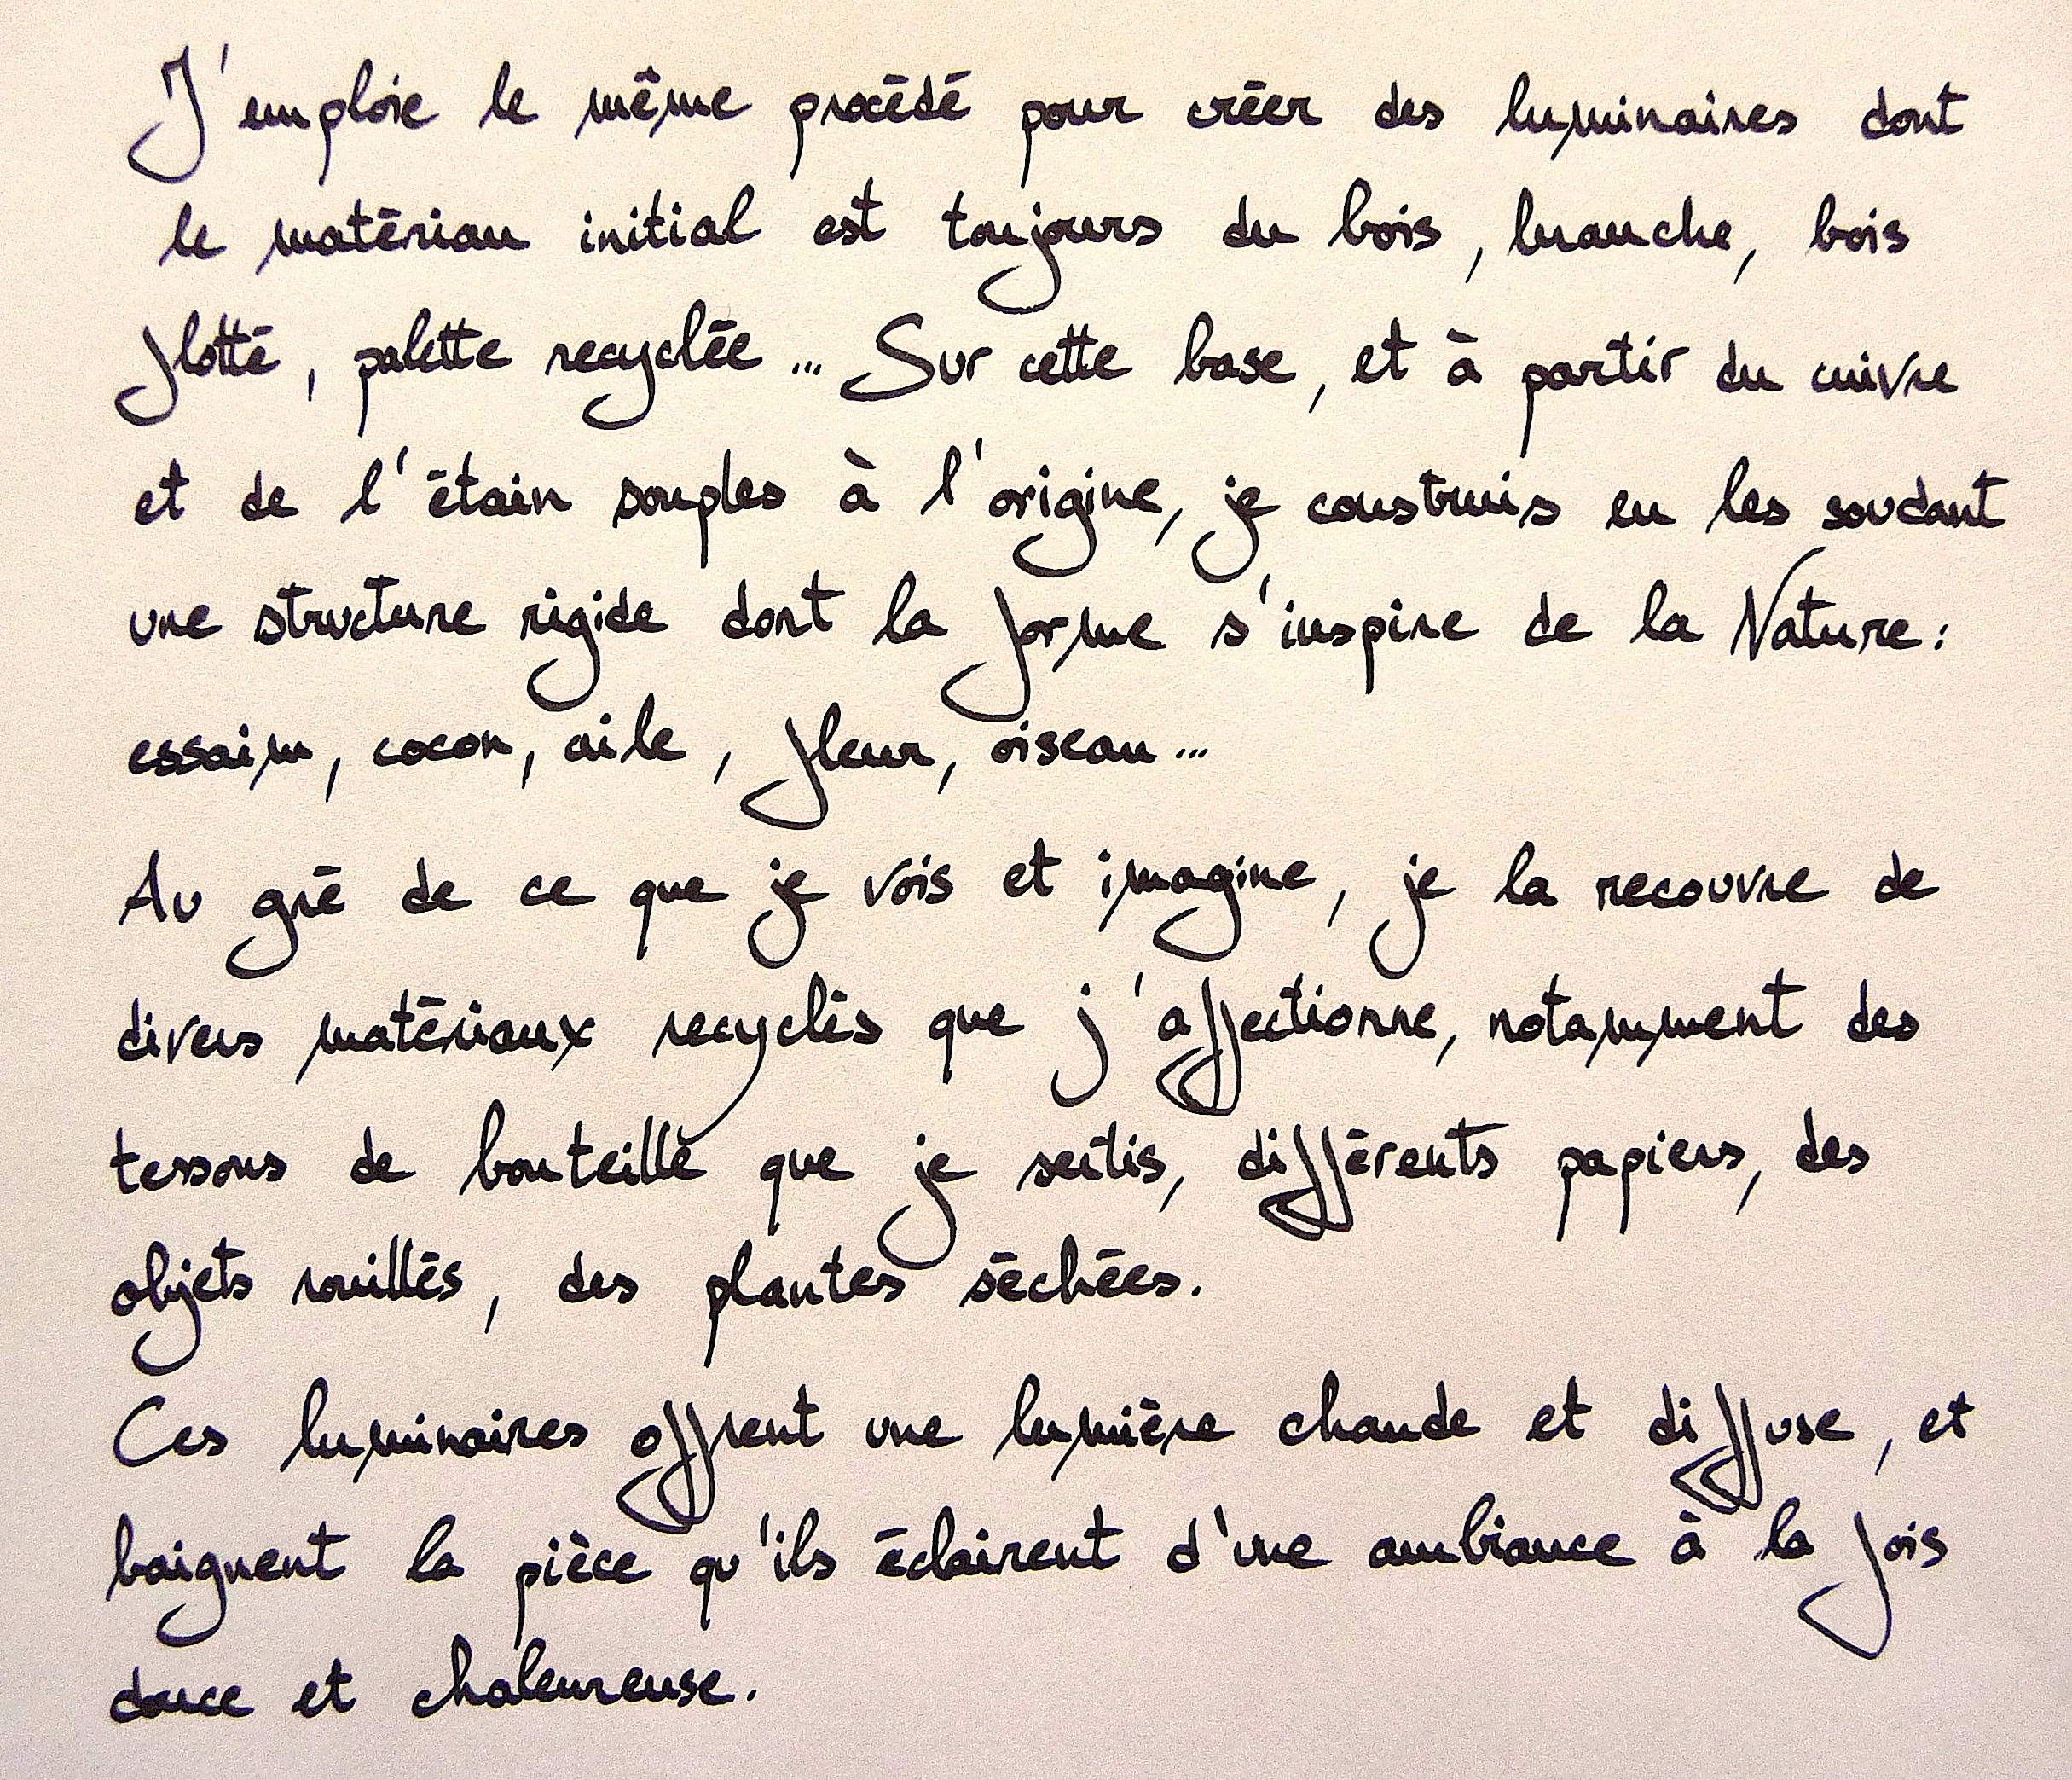 J'emploie le même procédé pour créer des luminaires dont
le matériau initial est toujours du bois, branche, bois
flotté, palette recyclée... Sur cette base, et à partir du cuivre
et de l'étain souples à l'origine, je construis en les soudant
une structure rigide dont la forme s'inspire de la Nature :
essaim, cocon, aile, fleur, oiseau...
Au gré de ce que je vois et imagine, je la recouvre de
divers matériaux recyclés que j'affectionne, notamment des
tessons de bouteille que je sertis, différents papiers, des
objets rouillés, des plantes séchées.
Ces luminaires offrent une lumière chaude et diffuse, et
baignent la pièce qu'ils éclairent d'une ambiance à la fois
douce et chaleureuse.